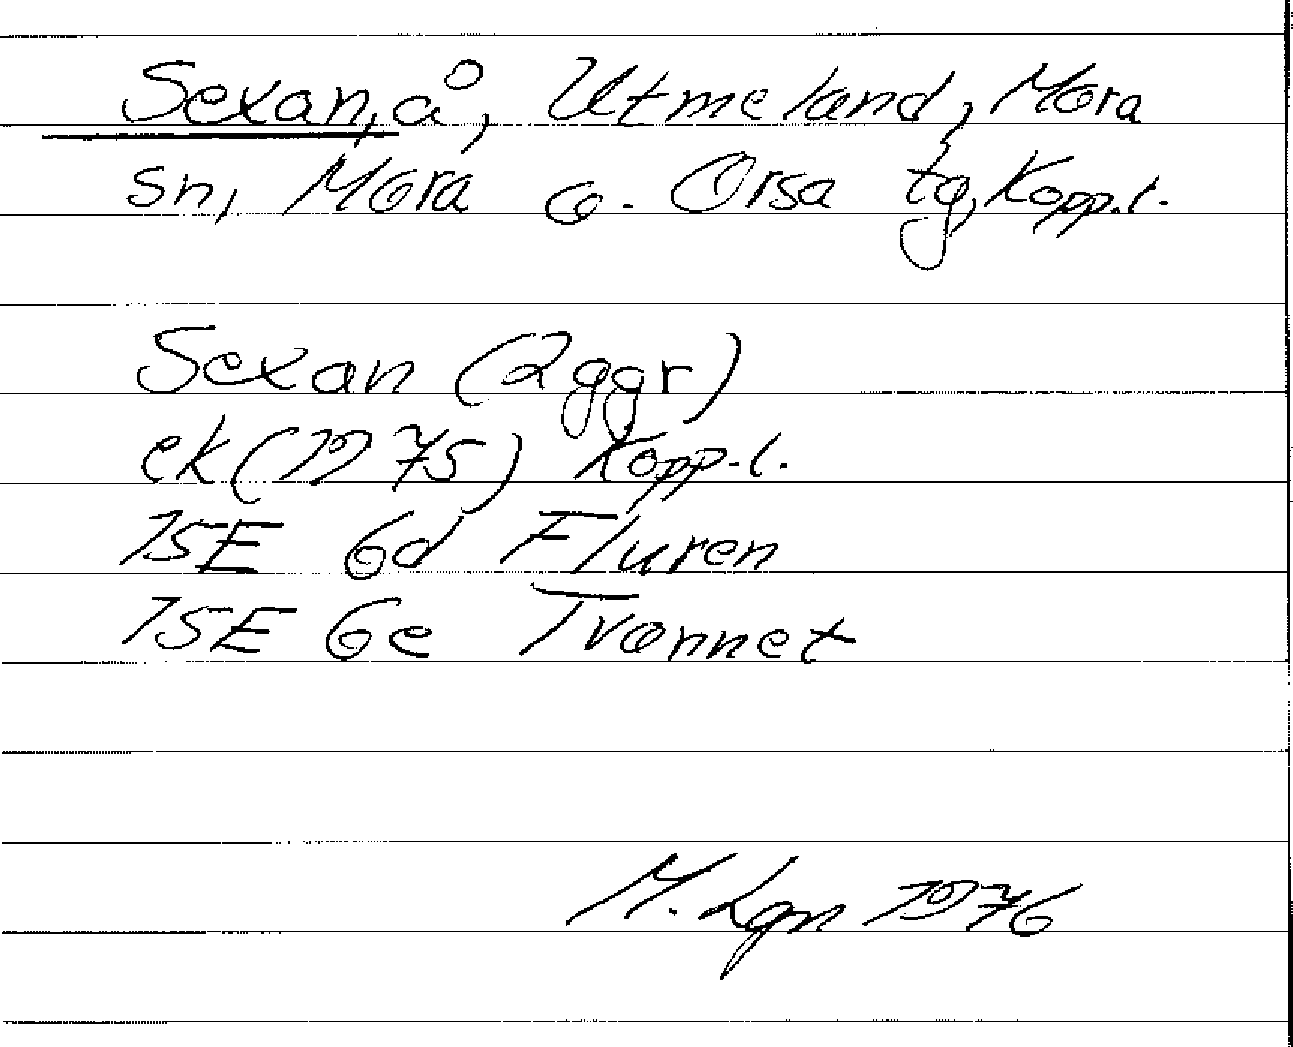 Sexan, å, Utmeland, Mora
sn, Mora o. Orsa tg, Kopp.l.
Sexan (2ggr)
ek (1975) Kopp.l.
15E 6d Fluren
15E 6e Tvannet
M. Lgn 1976